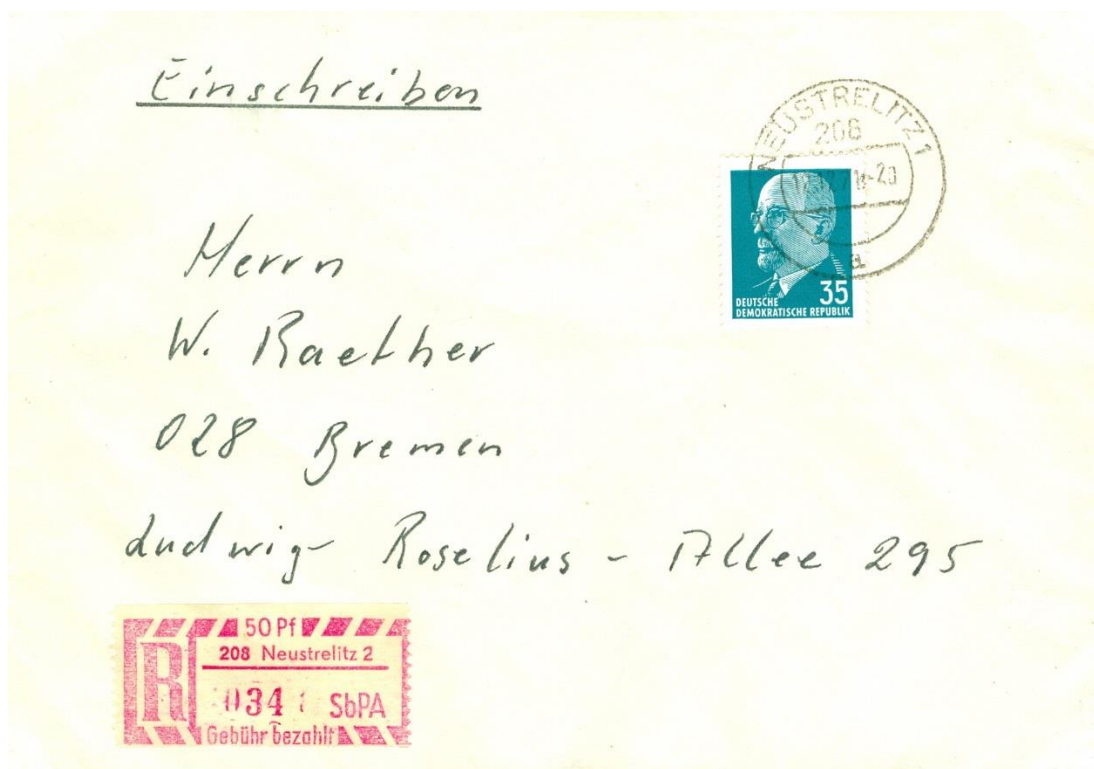 Einschreiben
NEUSTRELITZ 1
208
a
35
DEUTSCHE
DEMOKRATISCHE REPUBLIK
Herrn
W. Raether
028 Bremen
Ludwig- Roselius - Allee 295
50 Pf
208 Neustrelitz 2
R
034
SbPA
Gebühr bezahlt